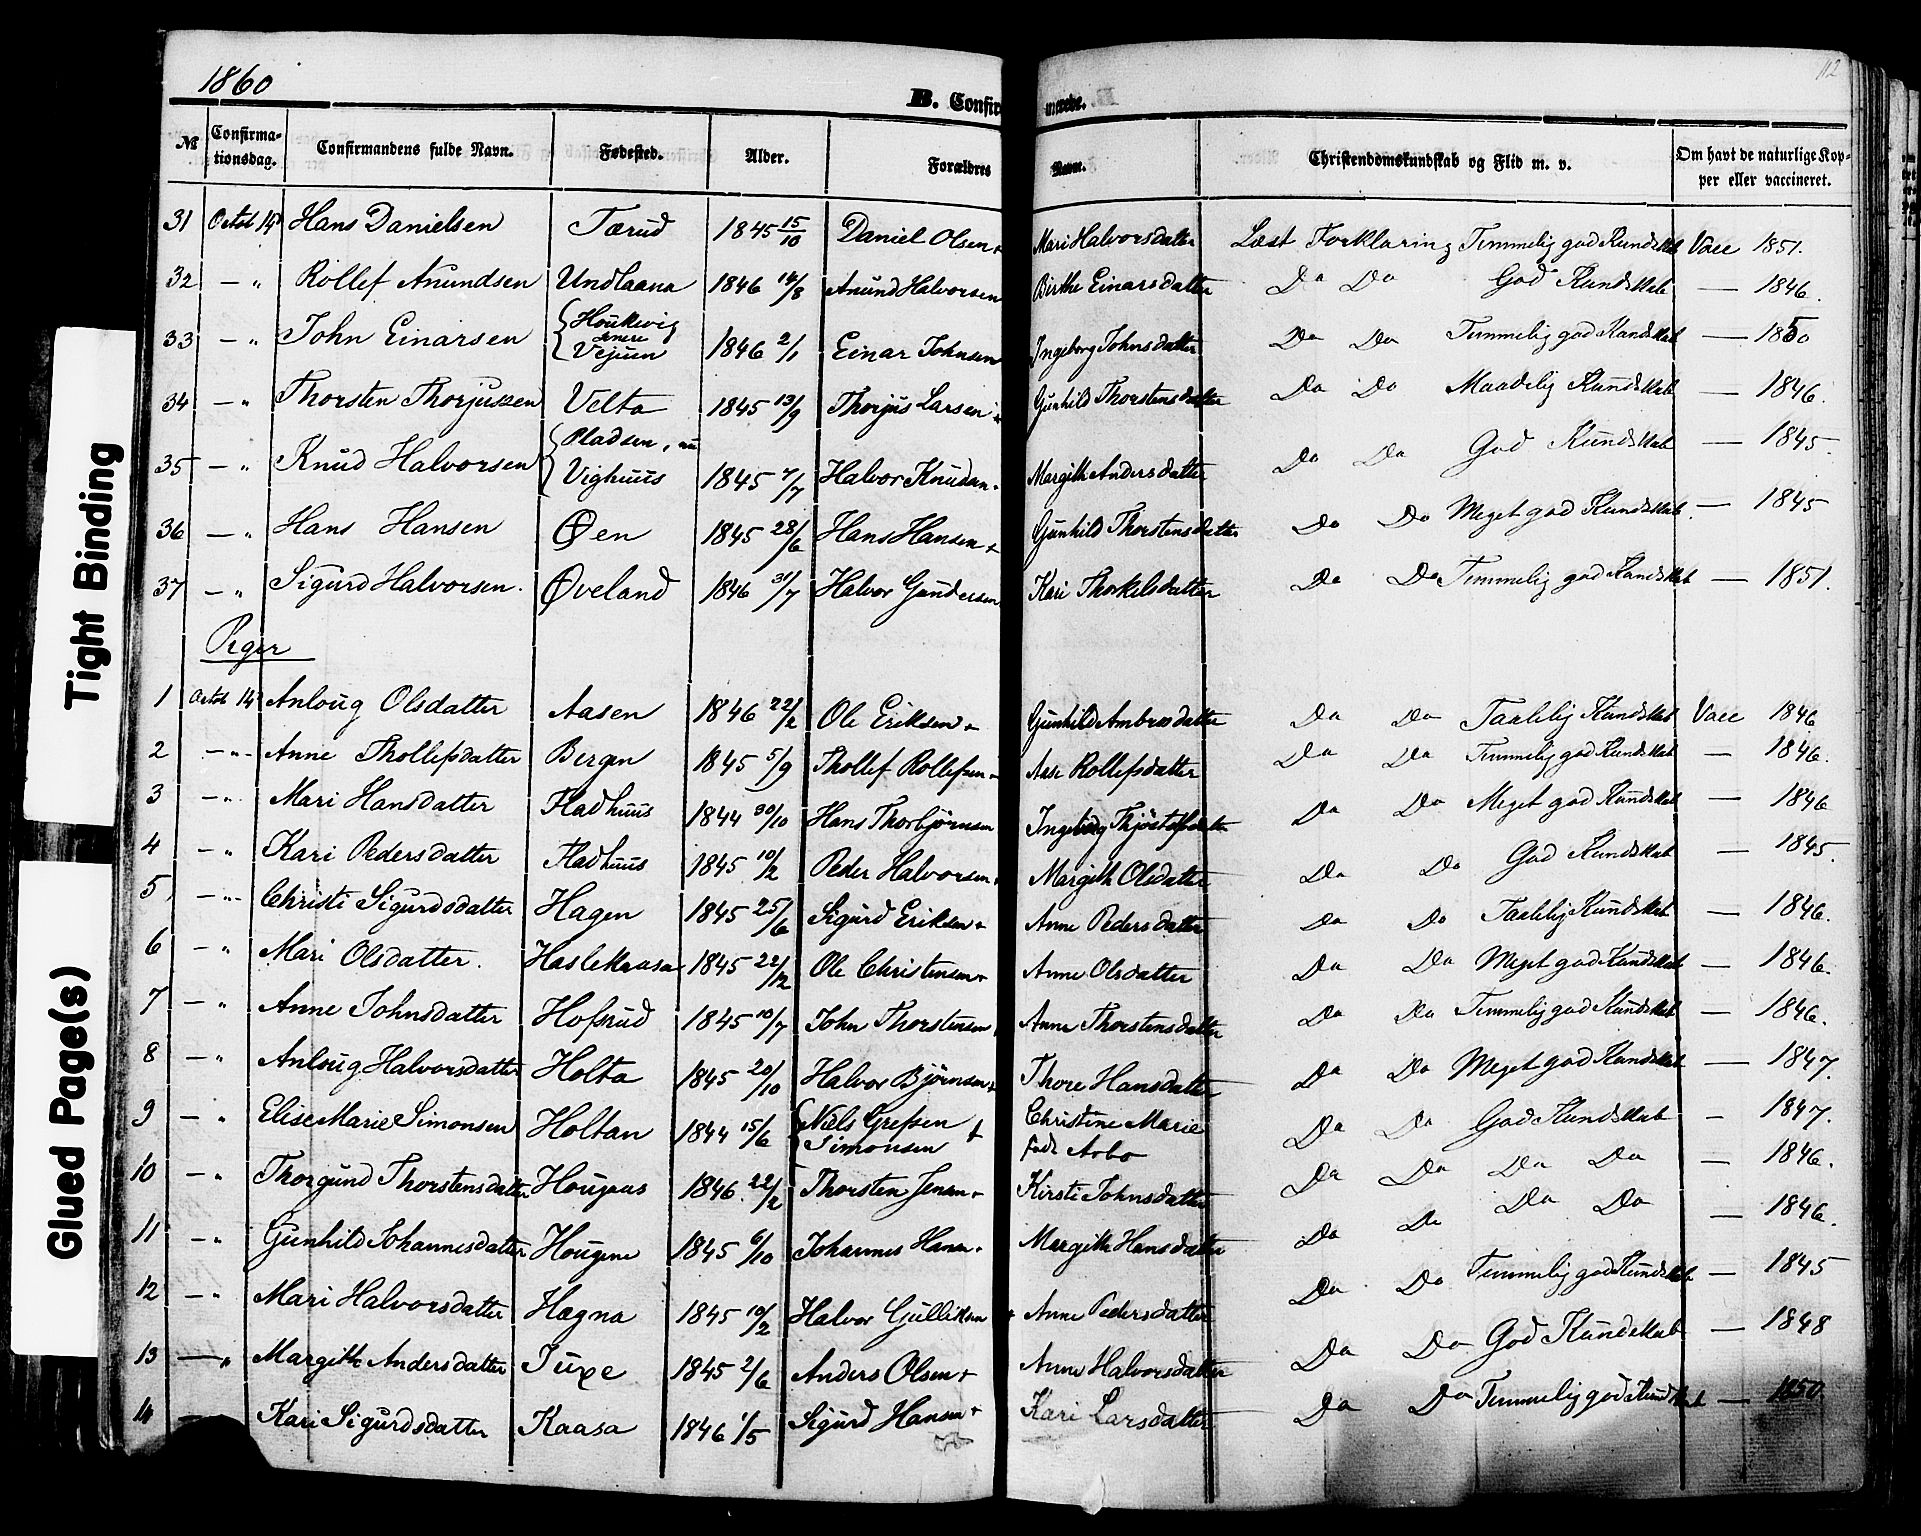 1860
112
B. Confirmerede.
№ Confirmationsdag. Confirmandens fulde Navn. Fødested. Alder. Forældres Navn. Christendomskundskab og Flid m. v. Om havt de naturlige Kopper eller vaccineret.
31 Octob 14 Hans Danielsen Tærud 1845 15/10 Daniel Olsen + Mari Halvorsdatter Læst Forklaring Temmelig god Kundskab Vacc 1851.
32 — " Rollef Anundsen Undlaana 1846 14/8 Anund Halvorsen Birthe Einarsdatter Do Do God Kundskab — 1846.
33 — " John Einarsen {Houkevig senere Vejuen 1846 2/1 Einar Johnsen Ingeborg Johnsdatter Do Do Temmelig god Kundskab — 1850
34 — " Thorsten Thorjussen Velta 1845 13/9 Thorjus Larsen + Gunhild Thorstensdatter Do Do Maadelig Kundskab — 1846.
35 — " Knud Halvorsen {Pladsen, nu Vighuus 1845 7/7 Halvor Knudsen Margith Andersdatter Do Do God Kundskab — 1845.
36 — " Hans Hansen Øen 1845 28/6 Hans Hansen + Gunhild Thorstensdatter Do Do Meget god Kundskab. — 1845
37 — " Sigurd Halvorsen. Øveland 1846 31/7 Halvor Gundersen Kari Thorkelsdatter Do Do Temmelig god Kundskab — 1851.
Piger
1 Octob 14 Anloug Olsdatter Aasen 1846 22/2 Ole Eriksen + Gunhild Ambrosdatter Do Do Taalelig Kundskab Vacc 1846
2 — " — Anne Thollefsdatter Bergen 1845 5/9 Thollef Rollefsen Aase Rollefsdatter Do Do Temmelig god Kundskab — 1846.
3 — " Mari Hansdatter Fladhuus 1844 30/10 Hans Thorbjørnsen Ingeborg Thjøstolfsdatter Do Do Meget god Kundskab — 1846
4 — " Kari Pedersdatter Fladhuus 1845 10/2 Peder Halvorsen + Margith Olsdatter Do Do God Kundskab — 1845.
5 — " Christi Sigurdsdatter Hagen 1845 25/6 Sigurd Eriksen + Anne Pedersdatter Do Do Taalelig Kundskab — 1846.
6 — " Mari Olsdatter. Haslekaasa 1845 22/12 Ole Christensen + Anne Olsdatter Do Do Meget god Kundskab — 1846.
7 — " Anne Johnsdatter Hofsrud 1845 10/7 John Thorstensen Anne Thorstensdatter Do Do Temmelig god Kundskab — 1846.
8 — " Anloug Halvorsdatter Holta 1845 20/10 Halvor Bjørnsen + Thore Hansdatter Do Do Meget god Kundskab — 1847.
9 — " Elise Marie Simonsen Holtan 1844 15/6 {Niels Grefsen Simonsen + Christine Marie født Arbo Do Do God Kundskab — 1847.
10 — " Thorgund Thorstensdatter Hougaas 1846 22/2 Thorsten Jensen + Kirsti Johnsdatter Do Do Do Do — 1846.
11 — " Gunhild Johannesdatter Hougene 1845 6/10 Johannes Hansen + Margith Hansdatter Do Do Do Do — 1846.
12 — " Mari Halvorsdatter Hægna 1845 10/2 Halvor Gulliksen + Anne Pedersdatter Do Do Temmelig god Kundskab — 1845
13 — " Margith Andersdatter Juxe 1845 2/6 Anders Olsen + Anne Halvorsdatter Do Do God Kundskab — 1848
14 — Kari Sigurdsdatter Kaasa 1846 1/5 Sigurd Hansen + Kari Larsdatter Do Do Temmelig god Kundskab — 1850.
Tight Binding
Glued Page(s)